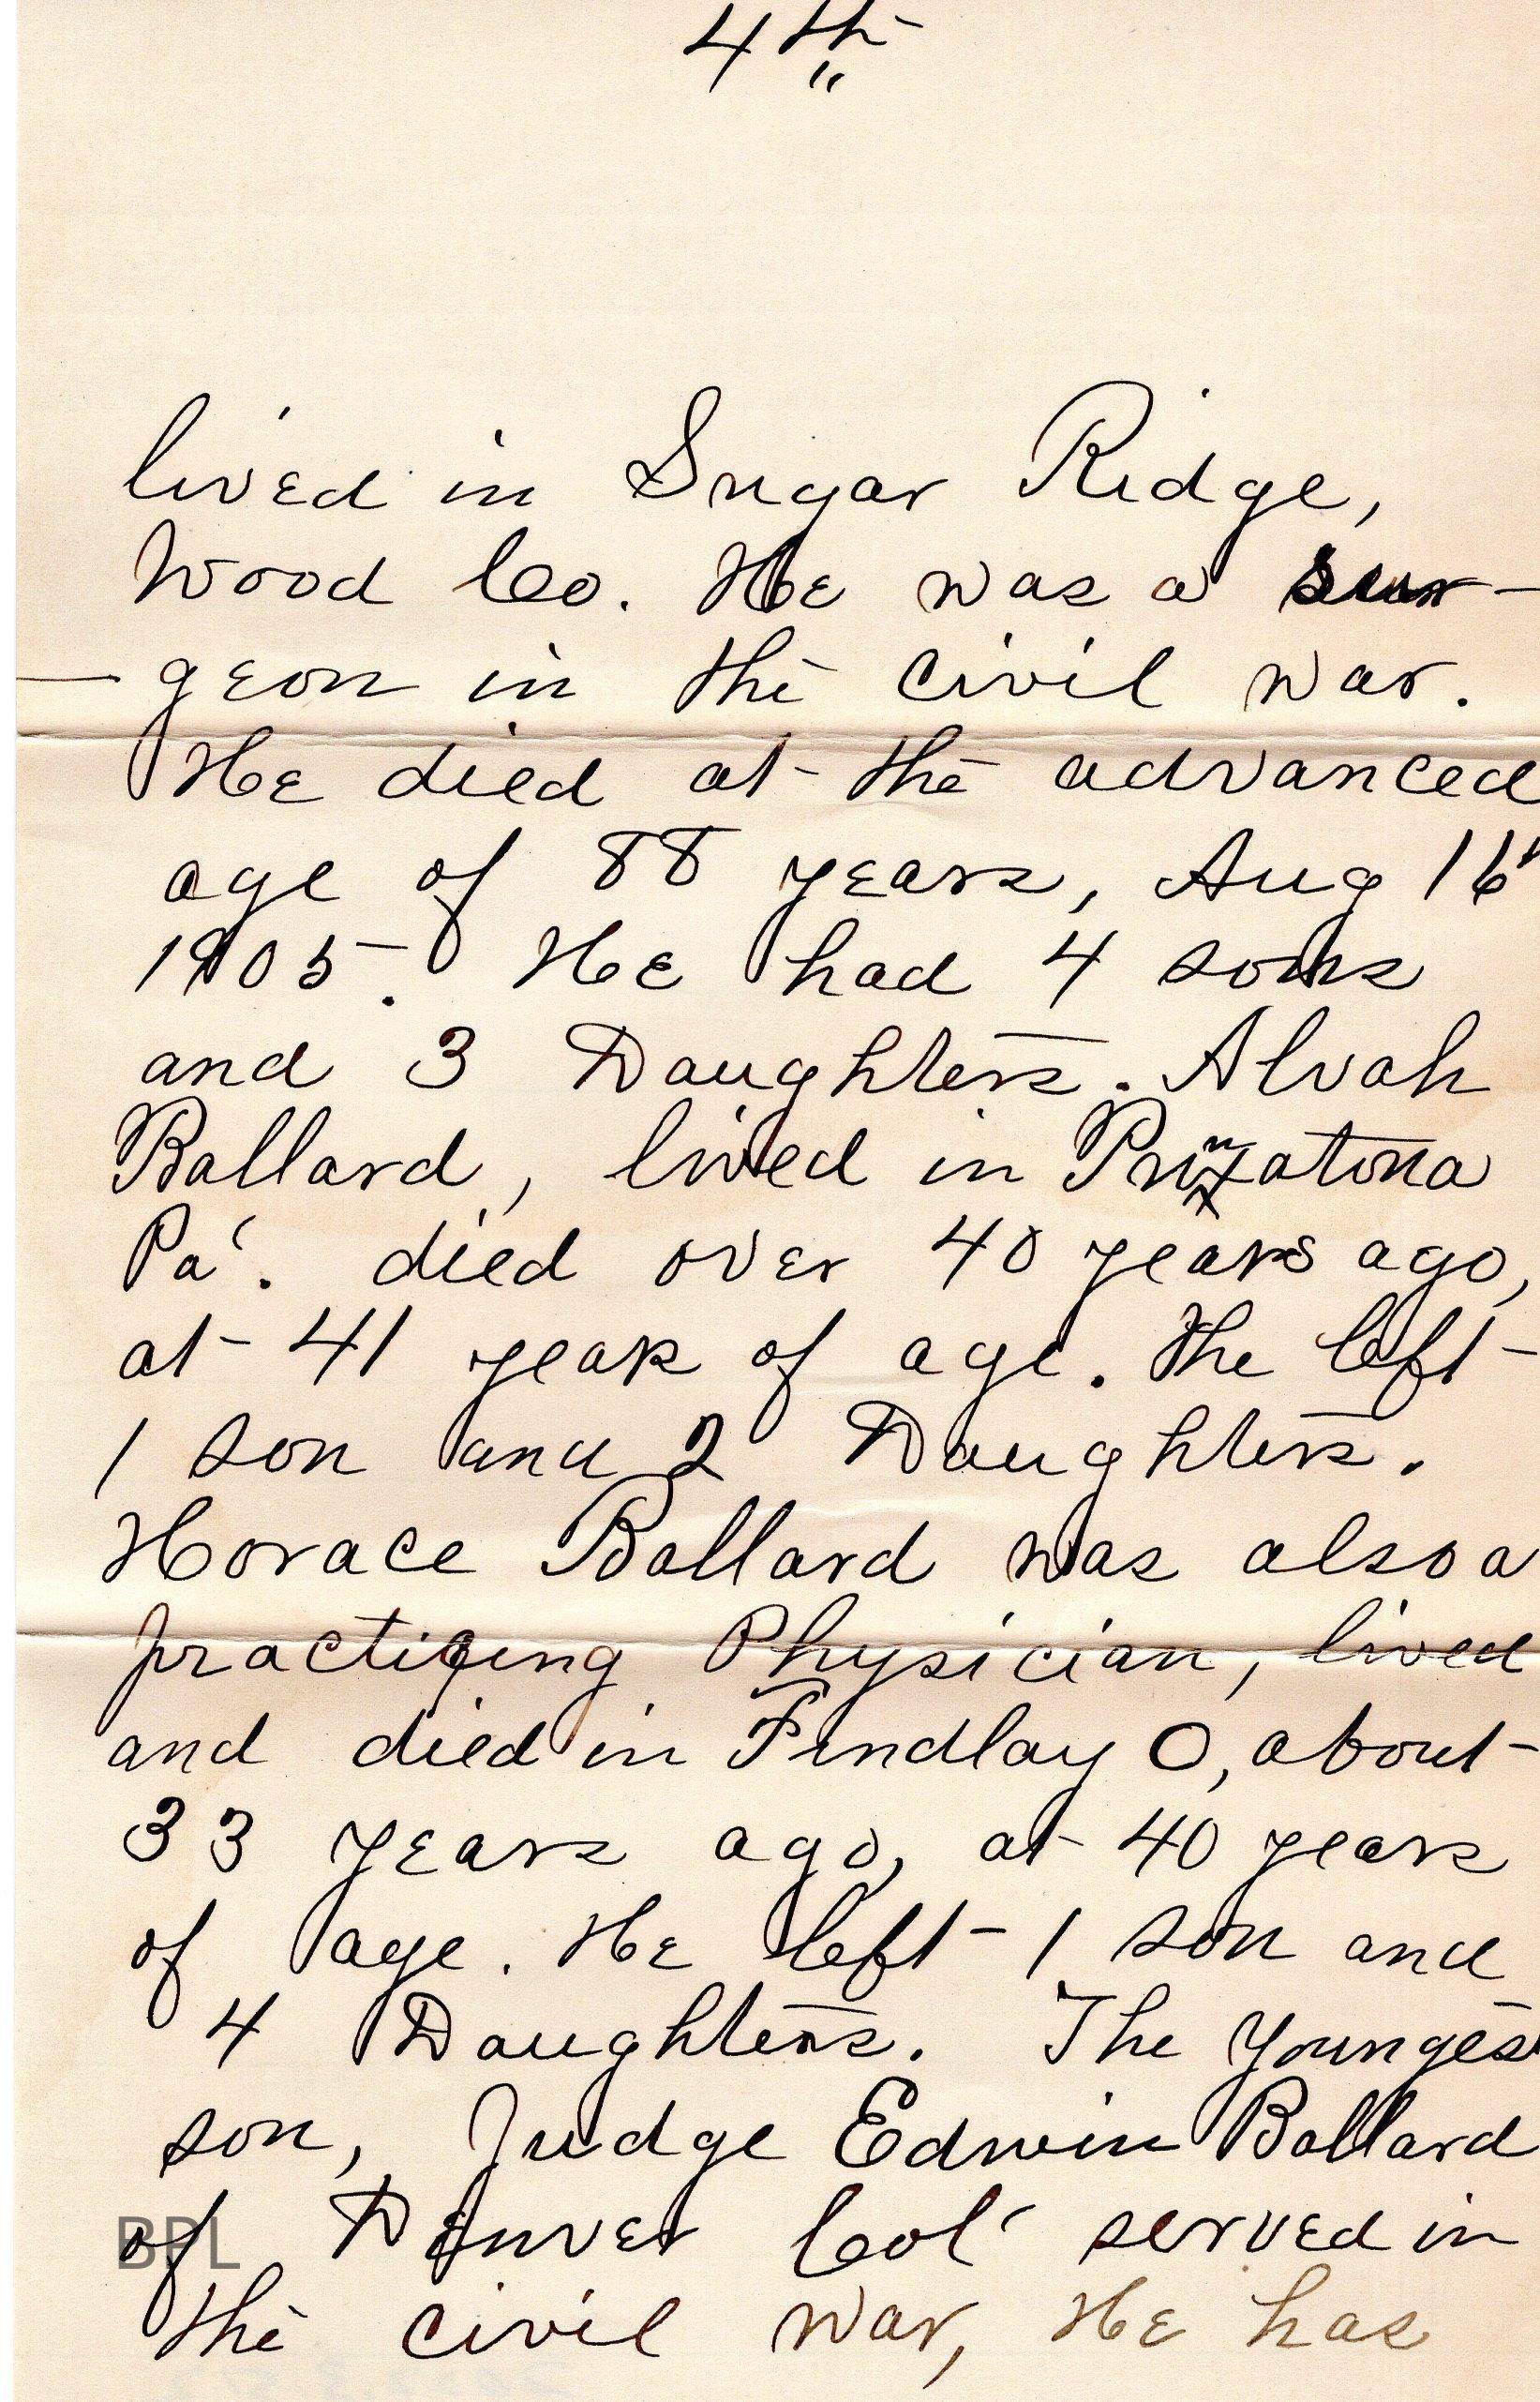 4th
"
lived in Sugar Ridge,
Wood Co. He was a sur-
-geon in the civil war.
He died at the advanced
age of 88 years, Aug 16"
1905. He had 4 sons
and 3 Daughters. Alvah
Ballard, lived in
Pa'. died over 40 years ago,
at 41 years of age. He left
1 son and 2 Daughters.
Horace Ballard was also a
practiging Physician, lived
and died in Findlay O, about
33 years ago, at 40 years
of age. He left 1 son and
4 Daughters. The Youngest
son, Judge Edwin Ballard
of Denver Col' served in
the civil war, He has
BPL